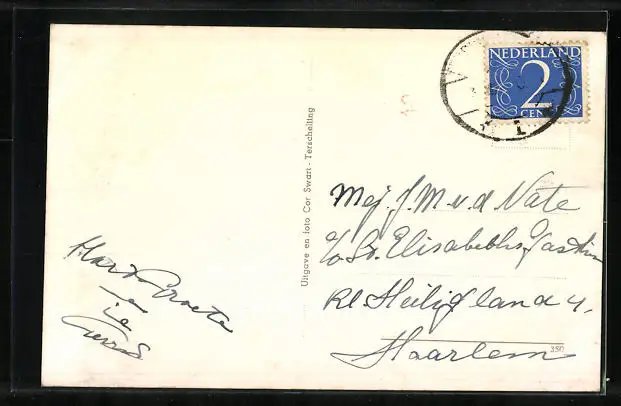 NEDERLAND
2
CENT
Uitgave en foto Cor Swart - Terschelling
Mej. J. M. v. d. Nate
c/o St. Elisabeths Gasthuis
Kl Heiligland 4.
Haarlem
350
Hart. Groete